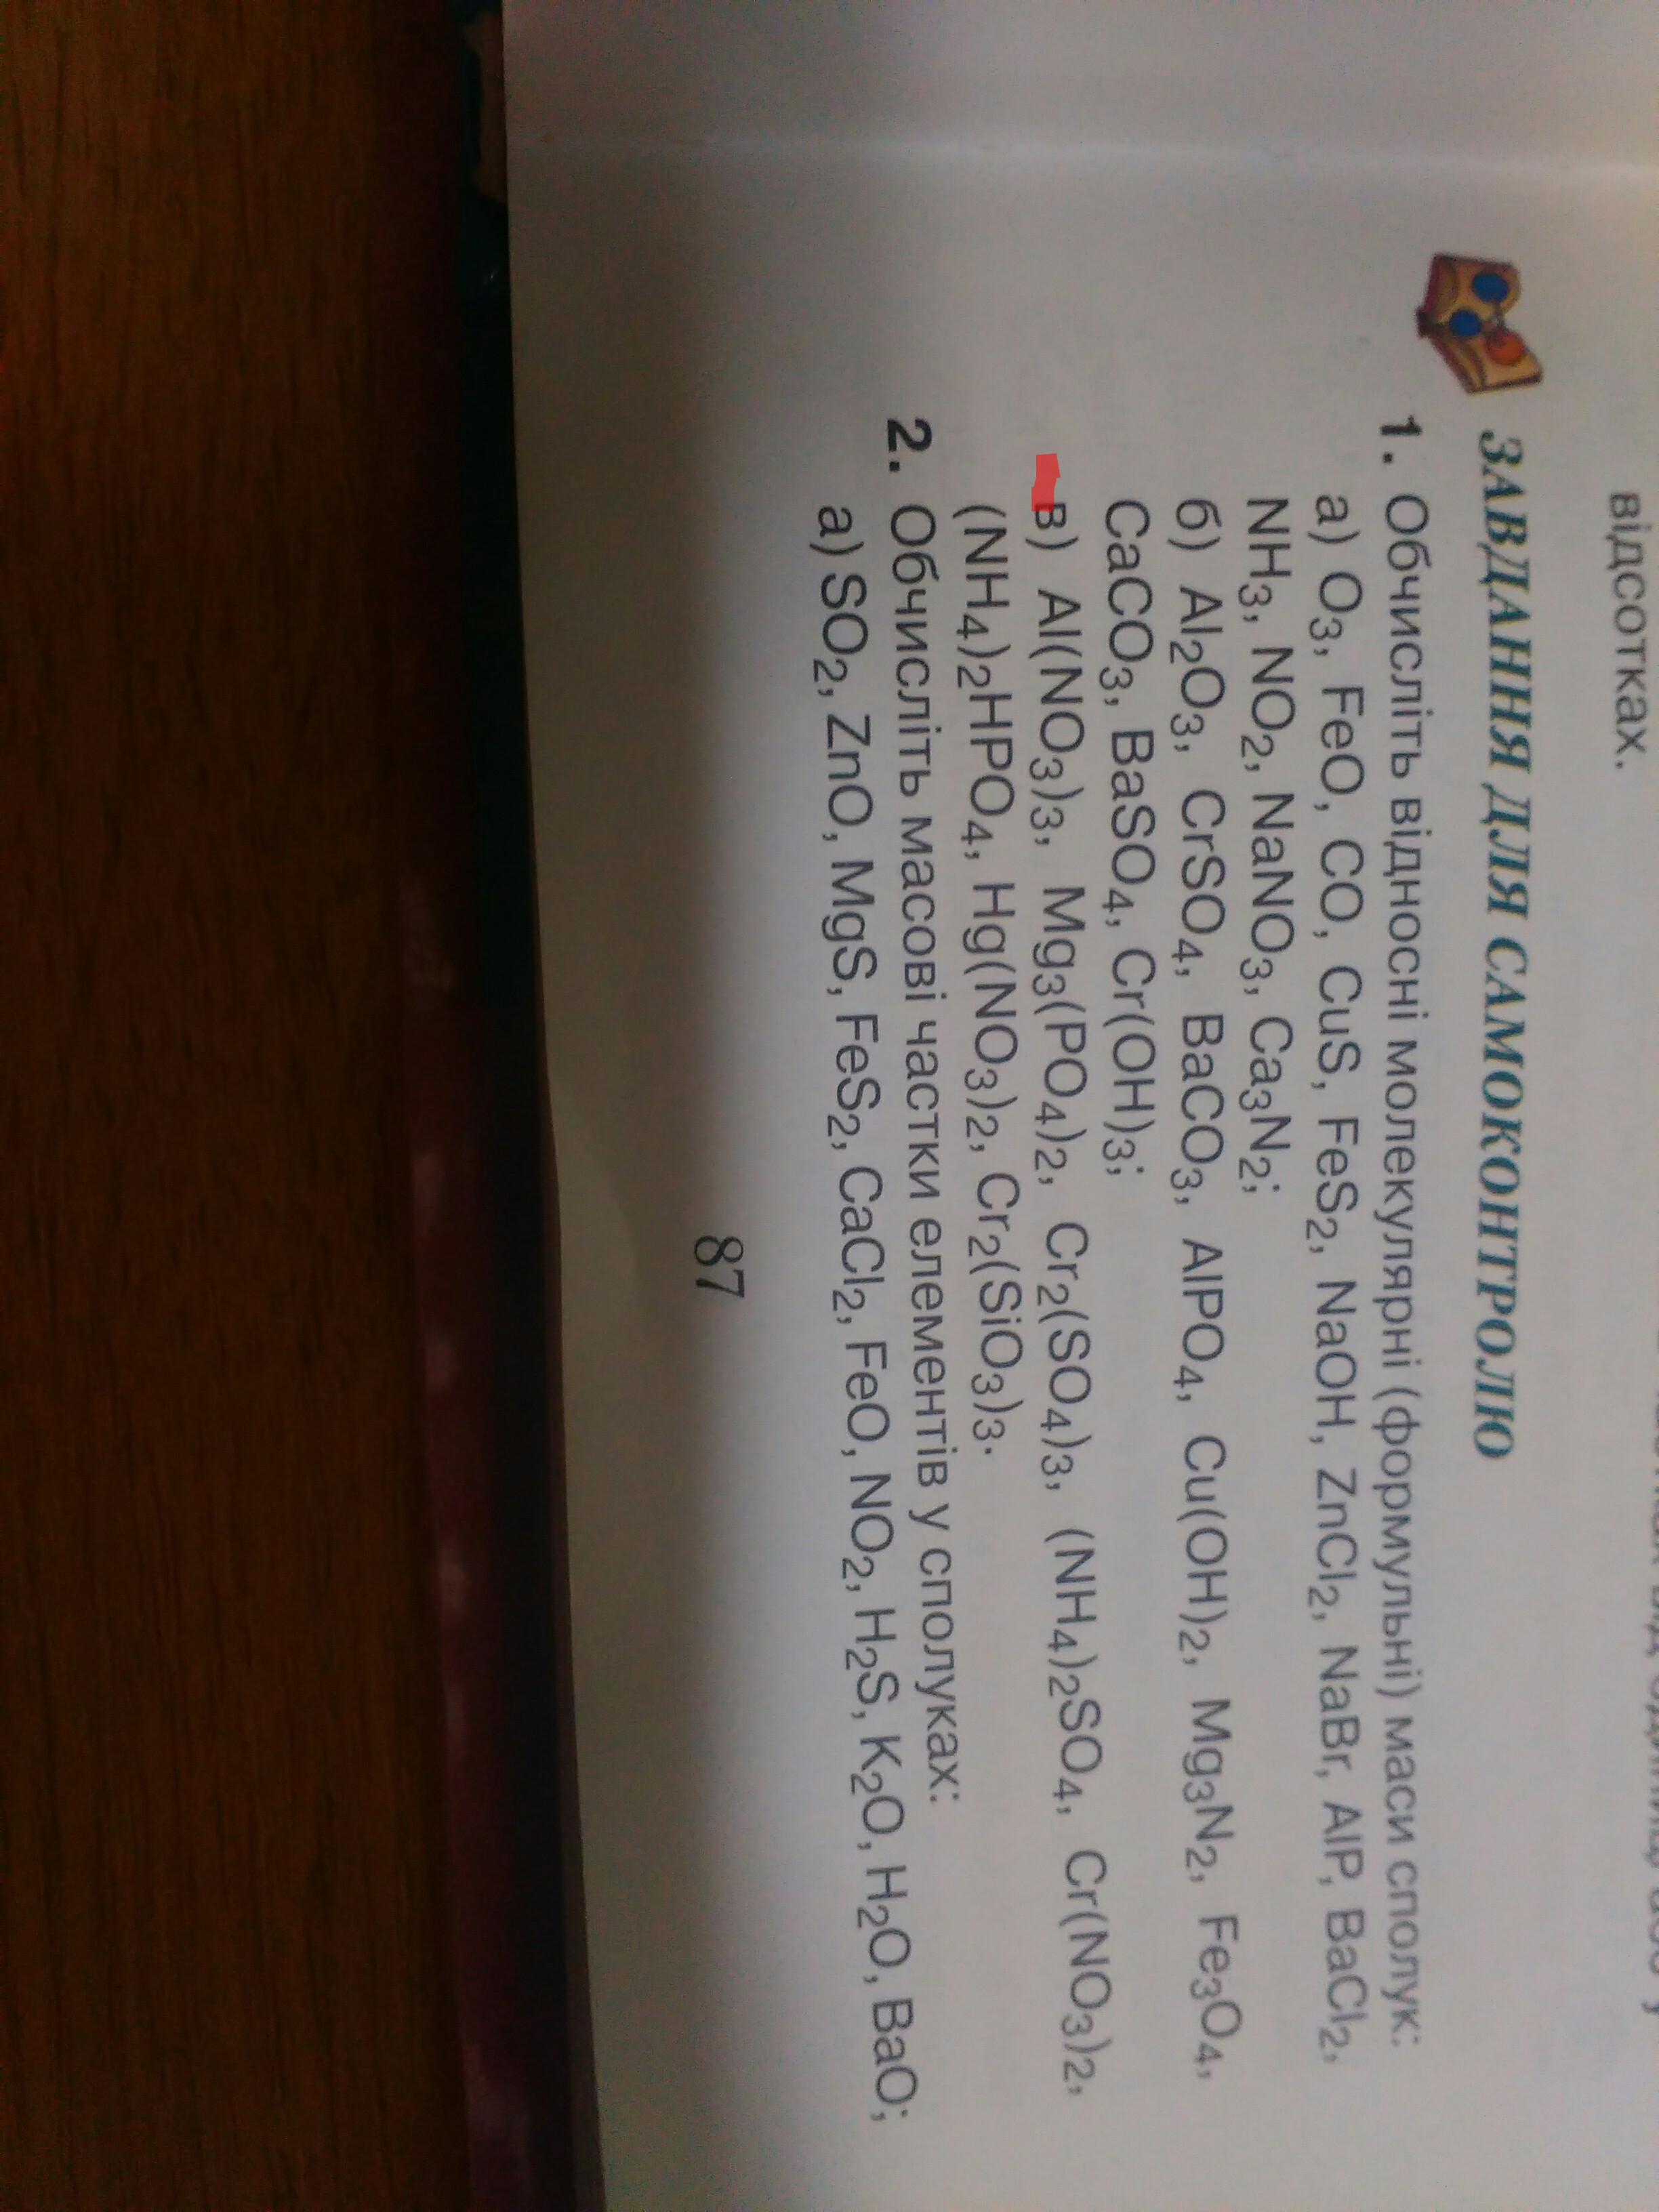 відсотках.
ЗАВДАННЯ ДЛЯ САМОКОНТРОЛЮ
1. Обчисліть відносні молекулярні (формульні) маси сполук:
а) O₃, FeO, CO, CuS, FeS₂, NaOH, ZnCl₂, NaBr, AlP, BaCl₂,
NH₃, NO₂, NaNO₃, Ca₃N₂;
б) Al₂O₃, CrSO₄, BaCO₃, AlPO₄, Cu(OH)₂, Mg₃N₂, Fe₃O₄,
CaCO₃, BaSO₄, Cr(OH)₃;
в) Al(NO₃)₃, Mg₃(PO₄)₂, Cr₂(SO₄)₃, (NH₄)₂SO₄, Cr(NO₃)₂,
(NH₄)₂HPO₄, Hg(NO₃)₂, Cr₂(SiO₃)₃.
2. Обчисліть масові частки елементів у сполуках:
а) SO₂, ZnO, MgS, FeS₂, CaCl₂, FeO, NO₂, H₂S, K₂O, H₂O, BaO;
87